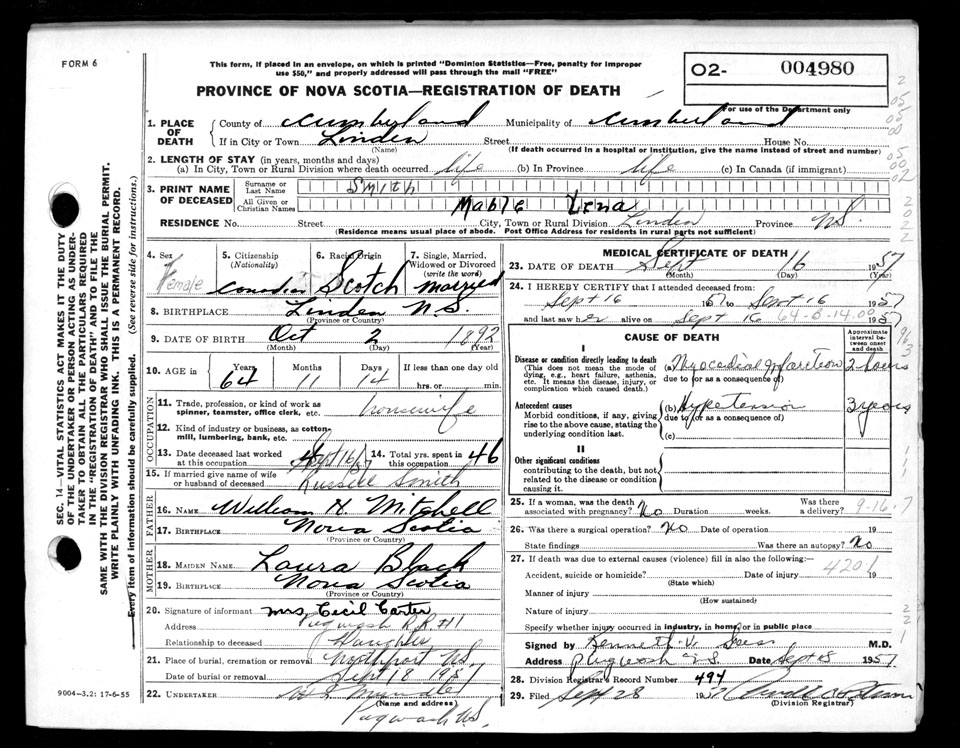 FORM 6
This form, if placed in an envelope, on which is printed "Dominion Statistics—Free, penalty for improper
use $50," and properly addressed will pass through the mail "FREE"
PROVINCE OF NOVA SCOTIA—REGISTRATION OF DEATH
02- 004980
For use of the Department only
1. PLACE OF DEATH
County of Cumberland Municipality of Cumberland
If in City or Town Linden Street House No.
(Name) (If death occurred in a hospital or institution, give the name instead of street and number)
2. LENGTH OF STAY (in years, months and days)
(a) In City, Town or Rural Division where death occurred life (b) In Province life (c) In Canada (if immigrant)
3. PRINT NAME OF DECEASED
Surname or Last Name Smith
All Given or Christian Names Mable Lena
RESIDENCE No. Street City, Town or Rural Division Linden Province N.S.
(Residence means usual place of abode. Post Office Address for residents in rural parts not sufficient)
4. Sex Female
5. Citizenship (Nationality) Canadian
6. Racial Origin Scotch
7. Single, Married, Widowed or Divorced (write the word) Married
8. BIRTHPLACE Linden N.S.
(Province or Country)
9. DATE OF BIRTH Oct 2 1892
(Month) (Day) (Year)
10. AGE in Years Months Days If less than one day old
64 11 14 hrs. or min.
OCCUPATION
11. Trade, profession, or kind of work as
spinner, teamster, office clerk, etc. housewife
12. Kind of industry or business, as cotton-
mill, lumbering, bank, etc.
13. Date deceased last worked at this occupation Sept 16/57
14. Total yrs. spent in this occupation 46
15. If married give name of wife
or husband of deceased Russell Smith
FATHER
16. NAME William H. Mitchell
17. BIRTHPLACE Nova Scotia
(Province or Country)
MOTHER
18. MAIDEN NAME Laura Black
19. BIRTHPLACE Nova Scotia
(Province or Country)
20. Signature of informant Mrs Cecil Carter
Address Pugwash R.R #1
Relationship to deceased Daughter
21. Place of burial, cremation or removal Northport N.S.
Date of burial or removal Sept 18 1957
22. UNDERTAKER
(Name and address)
Pugwash N.S.
MEDICAL CERTIFICATE OF DEATH
23. DATE OF DEATH Sept 16 1957
(Month) (Day) (Year)
24. I HEREBY CERTIFY that I attended deceased from:
Sept 16 1957 to Sept 16 1957
and last saw her alive on Sept 16 1957
64-B-14.00
CAUSE OF DEATH
Approximate interval between onset and death
I
Disease or condition directly leading to death
(This does not mean the mode of dying, e.g., heart failure, asthenia, etc. It means the disease, injury, or complication which caused death.)
(a) Myocardial Infarction 2 hours
due to (or as a consequence of)
Antecedent causes
Morbid conditions, if any, giving rise to the above cause, stating the underlying condition last.
(b) Hypertension 3 years
due to (or as a consequence of)
(c)
II
Other significant conditions
contributing to the death, but not related to the disease or condition causing it.
25. If a woman, was the death associated with pregnancy? No Duration weeks. Was there a delivery?
9-16-7
26. Was there a surgical operation? No Date of operation 19
State findings Was there an autopsy? No
27. If death was due to external causes (violence) fill in also the following:—
4201
Accident, suicide or homicide? Date of injury 19
(State which)
Manner of injury
(How sustained)
Nature of injury
Specify whether injury occurred in industry, in home, or in public place
Signed by Kenneth V. M.D.
Address Pugwash N.S. Date Sept 18 1957
28. Division Registrar's Record Number 494
29. Filed Sept 28 1957
(Division Registrar)
SEC. 14—VITAL STATISTICS ACT MAKES IT THE DUTY
OF THE UNDERTAKER OR PERSON ACTING AS UNDER-
TAKER TO OBTAIN ALL THE PARTICULARS REQUIRED
IN THE "REGISTRATION OF DEATH" AND TO FILE THE
SAME WITH THE DIVISION REGISTRAR WHO SHALL ISSUE THE BURIAL PERMIT.
WRITE PLAINLY WITH UNFADING INK. THIS IS A PERMANENT RECORD.
Every item of information should be carefully supplied. (See reverse side for instructions.)
9004-3.2: 17-6-55